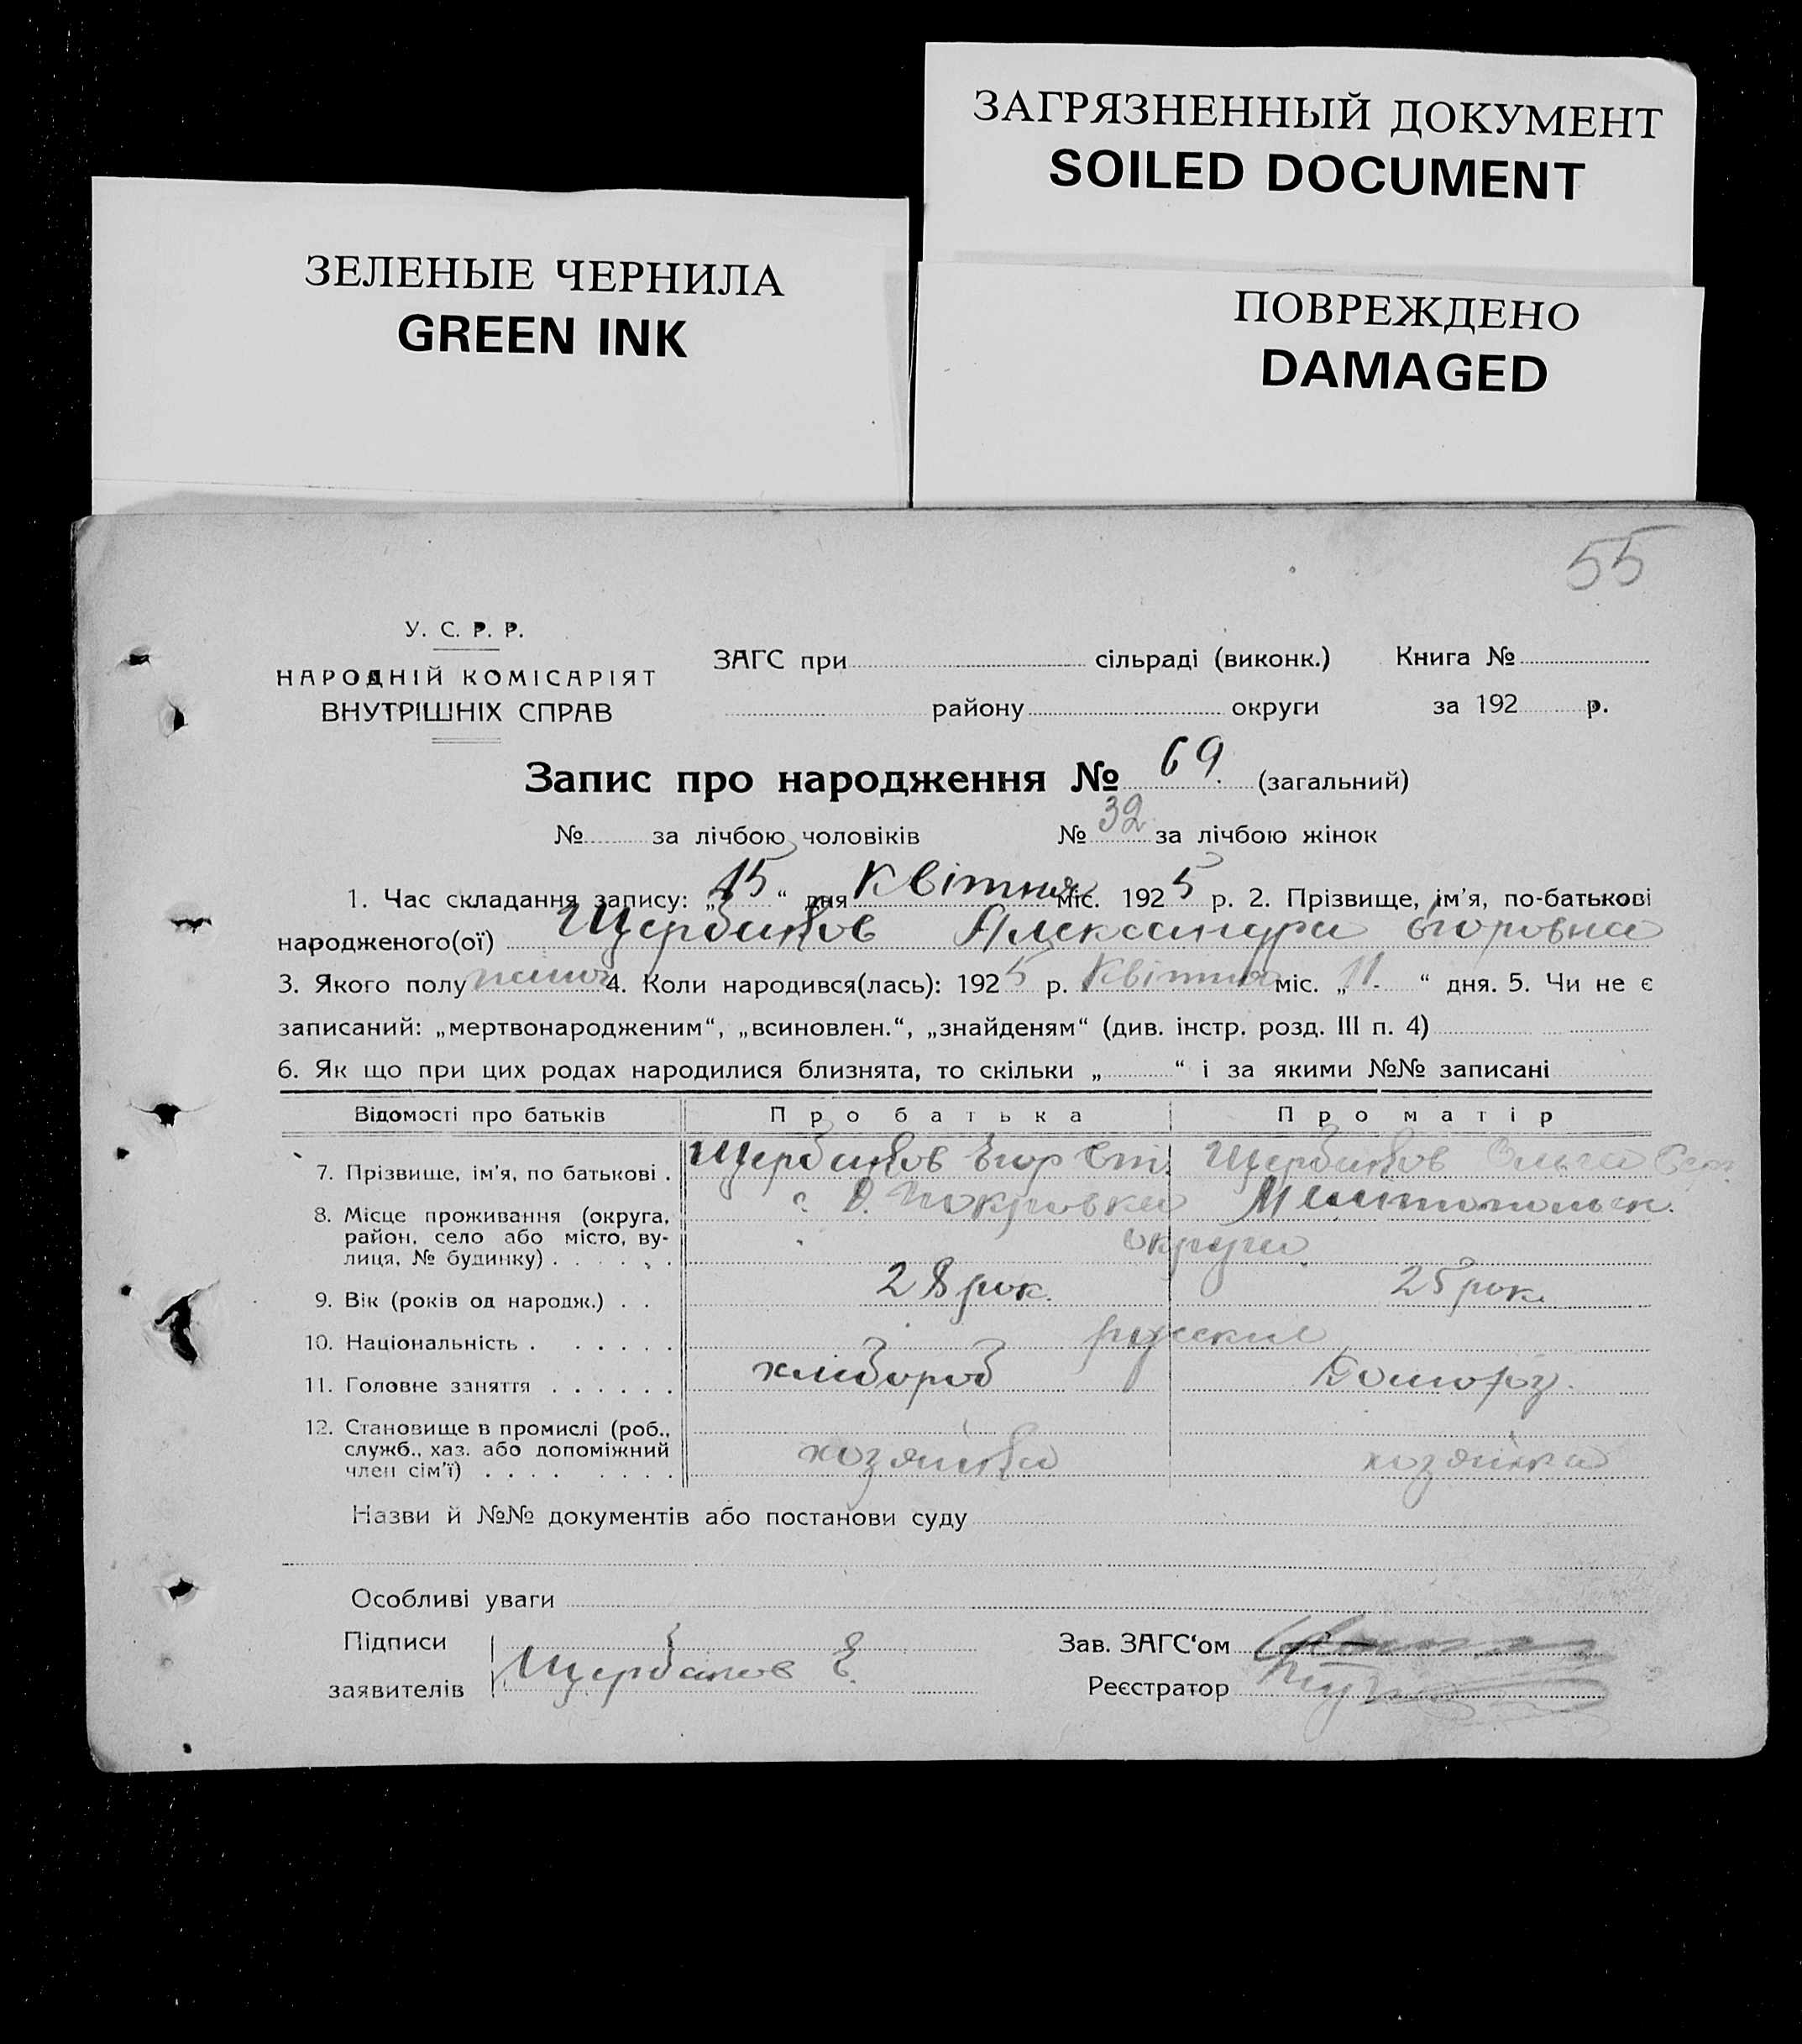 ЗАГРЯЗНЕННЫЙ ДОКУМЕНТ
SOILED DOCUMENT
ЗЕЛЕНЫЕ ЧЕРНИЛА
GREEN INK
ПОВРЕЖДЕНО
DAMAGED
55
У. С. Р. Р.
НАРОДНІЙ КОМІСАРІЯТ
ВНУТРІШНІХ СПРАВ
ЗАГС при сільраді (виконк.) Книга №
району округи за 192 р.
Запис про народження № 69. (загальний)
№ за лічбою чоловіків № 32 за лічбою жінок
1. Час складання запису: „15“ дня Квітня міс. 1925 р. 2. Прізвище, ім'я, по-батькові
народженого(ої) Щербаков Александра Егоровна
3. Якого полу 4. Коли народився(лась): 1925 р. Квітня міс. „11.“ дня. 5. Чи не є
записаний: „мертвонародженим“, „всиновлен.“, „знайденям“ (див. інстр. розд. III п. 4)
6. Як що при цих родах народилися близнята, то скільки „ “ і за якими №№ записані
Відомості про батьків Про батька Про матір
7. Прізвище, ім'я, по батькові . Щербаков Егор Ст. Щербаков Ольга
8. Місце проживання (округа, район, село або місто, ву-лиця, № будинку) . . . . . . с. Покровка Мелитопольск.
округи
9. Вік (років од народж.) . . 28 рок. 25 рок.
10. Національність . . . . . . русские
11. Головне заняття . . . . . . хлибороб Домогоз.
12. Становище в промислі (роб.,
служб., хаз. або допоміжний
член сім'ї) . . . . . . . . хозяин хозяйка
Назви й №№ документів або постанови суду
Особливі уваги
Підписи
заявителів Щербаков Е.
Зав. ЗАГС‘ом
Реєстратор